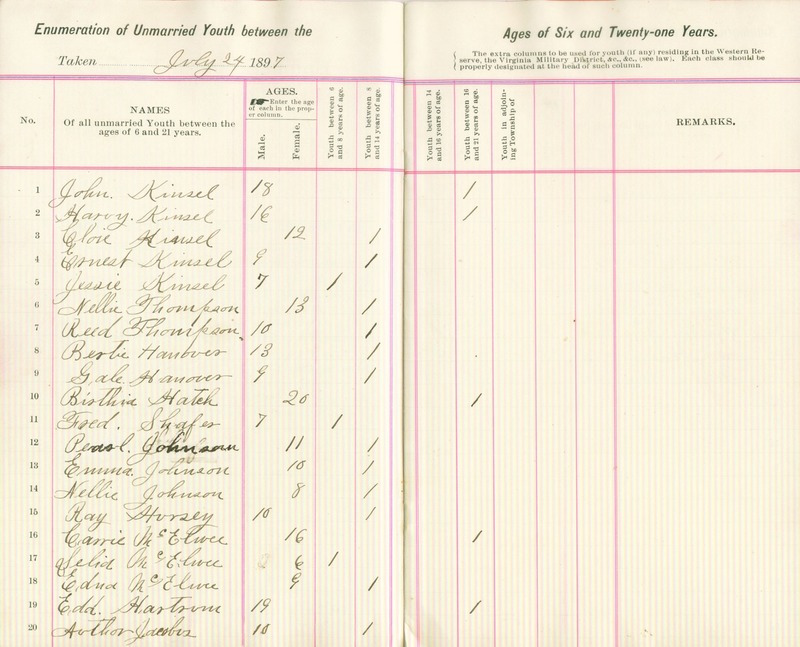 Enumeration of Unmarried Youth between the Ages of Six and Twenty-one Years.
Taken July 24 1897
The extra columns to be used for youth (if any) residing in the Western Re-
serve, the Virginia Military District, &c., &c., (see law). Each class should be
properly designated at the head of such column.
No.
NAMES
Of all unmarried Youth between the
ages of 6 and 21 years.
AGES.
Enter the age
of each in the prop-
er column.
Male.
Female.
Youth between 6
and 8 years of age.
Youth between 8
and 14 years of age.
Youth between 14
and 16 years of age.
Youth between 16
and 21 years of age.
Youth in adjoin-
ing Township of
REMARKS.
1 John. Kinsel 18 1
2 Harvy. Kinsel 16 1
3 Kinsel 12 1
4 Ernest Kinsel 9 1
5 Jessie Kinsel 7 1
6 Nellie Thompson 13 1
7 Reed Thompson 10 1
8 Bertie Hanover 13 1
9 Gale Hanover 9 1
10 Hatch 20 1
11 Fred. Shafer 7 1
12 Pearl. Johnson 11 1
13 Emma. Johnson 10 1
14 Nellie Johnson 8 1
15 Ray Horsey 10 1
16 Carrie McElwee 16 1
17 McElwee 6 1
18 Edna McElwee 9 1
19 Edd. Hartrum 19 1
20 Author Jacobs 10 1